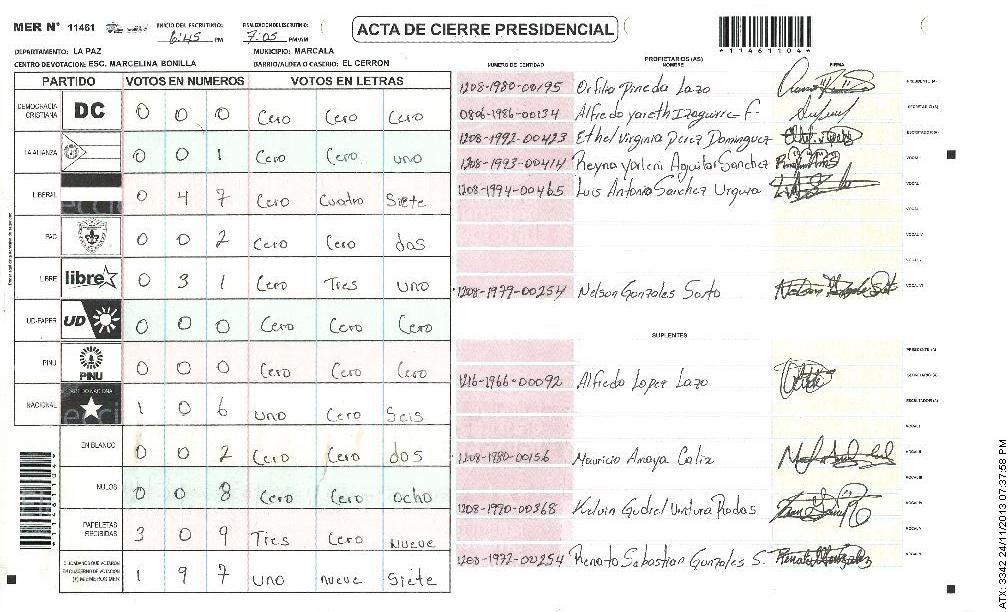 MER N° 11461
INICIO DEL ESCRUTINIO: 6:45 PM
FINALIZACION DEL ESCRUTINIO: 7:05 PM/AM
ACTA DE CIERRE PRESIDENCIAL
*11461104*
DEPARTAMENTO: LA PAZ
MUNICIPIO: MARCALA
CENTRO DE VOTACION: ESC. MARCELINA BONILLA
BARRIO/ALDEA O CASERIO: EL CERRON
PARTIDO VOTOS EN NUMEROS VOTOS EN LETRAS
DEMOCRACIA CRISTIANA DC 0 0 0 Cero Cero Cero
LA ALIANZA 0 0 1 Cero Cero uno
LIBERAL 0 4 7 Cero Cuatro Siete
PAC 0 0 2 Cero Cero dos
LIBRE libre 0 3 1 Cero Tres uno
UD-FAPER UD 0 0 0 Cero Cero Cero
PINU PINU 0 0 0 Cero Cero Cero
NACIONAL 1 0 6 uno Cero Seis
EN BLANCO 0 0 2 Cero Cero dos
NULOS 0 0 8 Cero Cero ocho
PAPELETAS RECIBIDAS 3 0 9 Tres Cero nueve
CIUDADANOS QUE VOTARON EN CUADERNO DE VOTACION (+) MIEMBROS MER 1 9 7 uno nueve Siete
PROPIETARIOS (AS)
NUMERO DE IDENTIDAD NOMBRE FIRMA
1208-1980-00195 Orfilio Pineda Lazo PRESIDENTE (A)
0806-1986-00134 Alfredo yareth Izaguirre F. SECRETARIO (A)
1208-1992-00423 Ethel Virginia Perez Dominguez ESCRUTADOR (A)
1208-1993-00414 Reyna yoleni Aguilar Sanchez VOCAL I
1208-1994-00465 Luis Antonio Sanchez Urquia VOCAL
VOCAL
VOCAL
VOCAL
1208-1979-00254 Nelson Gonzales Sorto VOCAL
SUPLENTES
PRESIDENTE (A)
1216-1966-00092 Alfredo Lopez Lazo SECRETARIO (A)
ESCRUTADOR (A)
VOCAL I
1208-1980-00156 Mauricio Amaya Calix VOCAL
VOCAL
1208-1990-00368 Kelvin Gudiel Ventura Rodas VOCAL
VOCAL
1208-1972-00254 Renato Sabastian Gonzales S. VOCAL
ATX: 3342 24/11/2013 07:37:58 PM